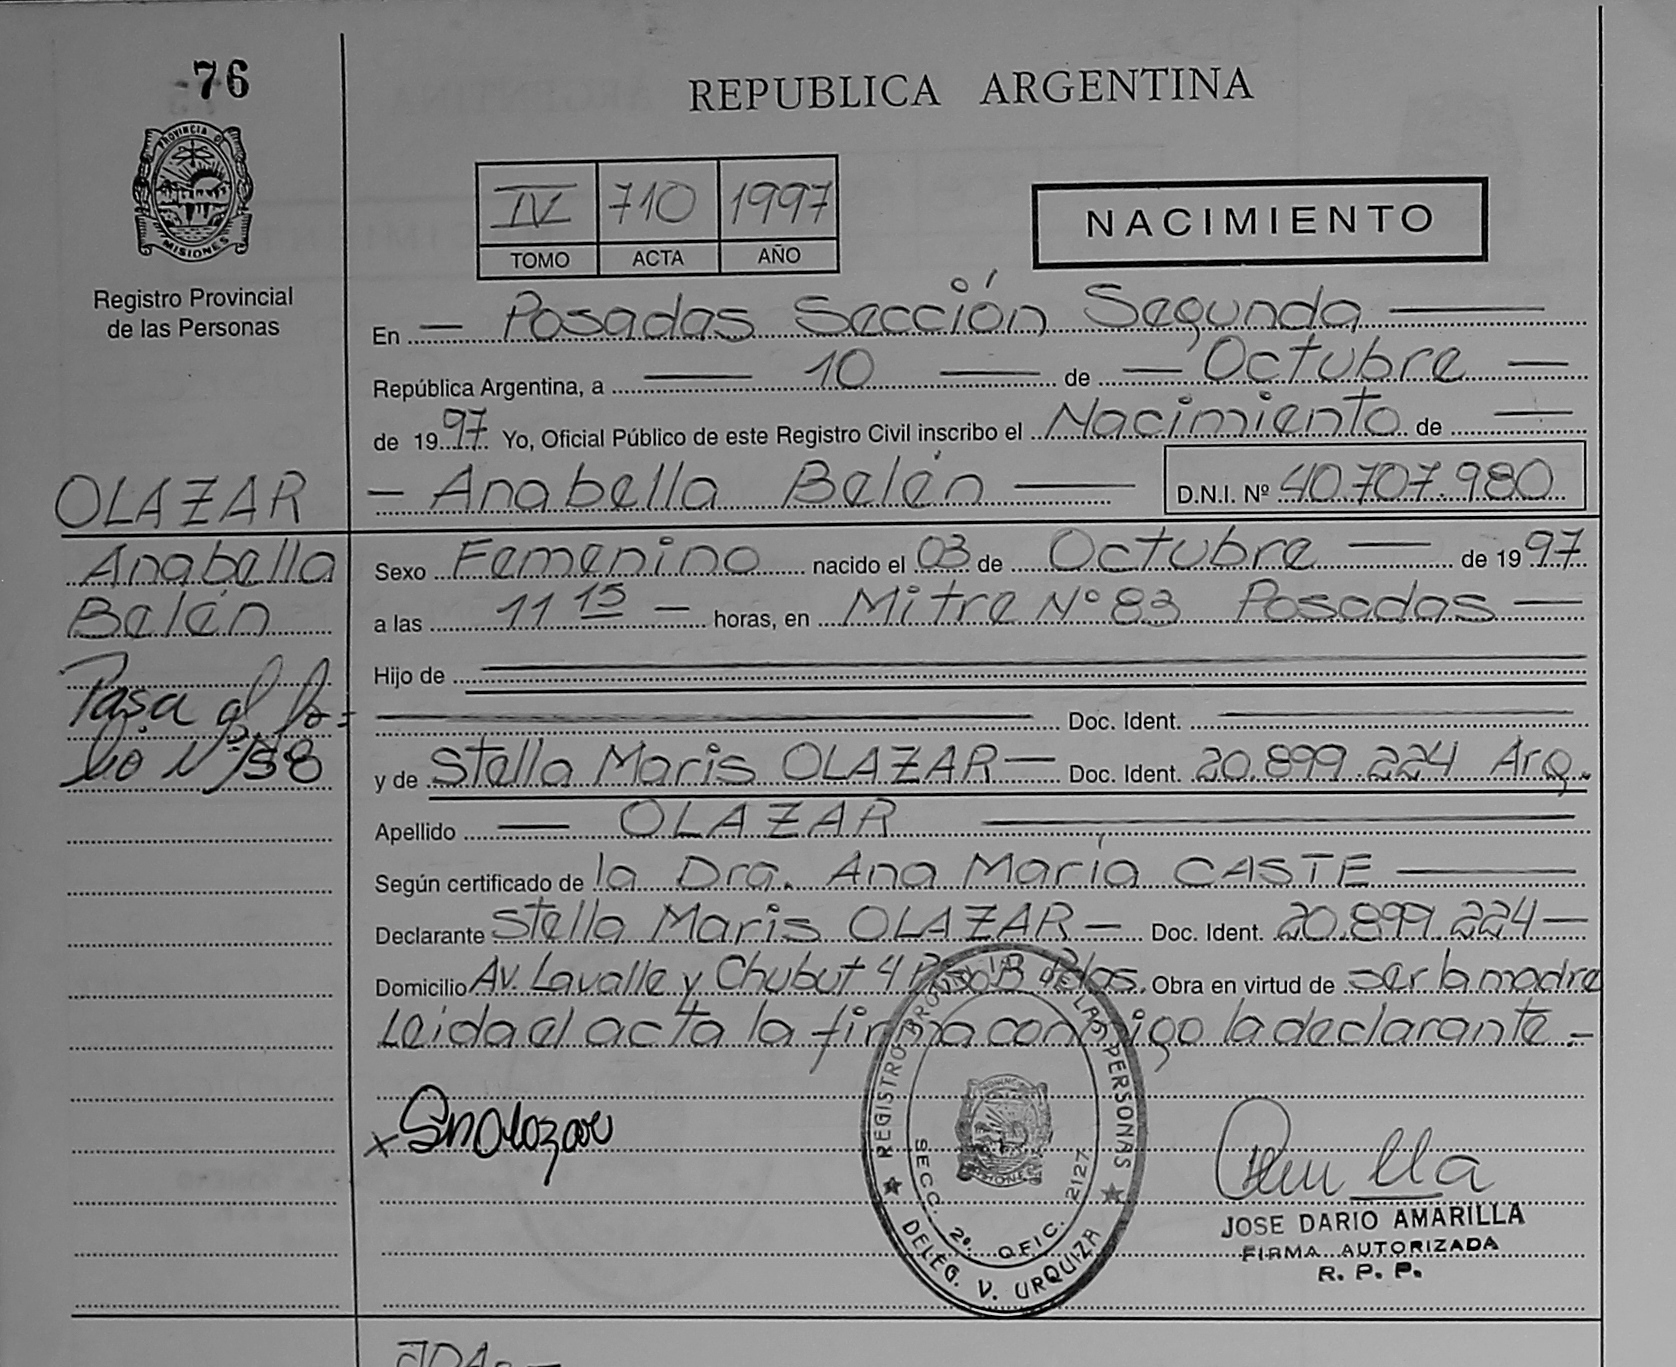 76
REPUBLICA ARGENTINA
PROVINCIA DE
MISIONES
Registro Provincial
de las Personas
IV 710 1997
TOMO ACTA AÑO
NACIMIENTO
En — Posadas Sección Segunda —
República Argentina, a — 10 — de — Octubre —
de 1997 Yo, Oficial Público de este Registro Civil inscribo el Nacimiento de —
— Anabella Belén — D.N.I. Nº 40.707.980
OLAZAR
Anabella
Belén
Pasa al fo-
lio Nº 158
Sexo Femenino nacido el 03 de Octubre — de 1997
a las 11 15 — horas, en Mitre Nº 83 Posadas —
Hijo de
Doc. Ident.
y de Stella Maris OLAZAR — Doc. Ident. 20.899.224 Arg.
Apellido — OLAZAR —
Según certificado de la Dra. Ana María CASTE —
Declarante Stella Maris OLAZAR — Doc. Ident. 20.899.224 —
Domicilio Av. Lavalle y Chubut 4 Piso B Pdas. Obra en virtud de ser la madre
Leida el acta la firma conmigo la declarante. -
x SMOlazar
REGISTRO PROV. DE LAS PERSONAS
SECC. 2º. OFIC. 2127
DELEG. V. URQUIZA
JOSE DARIO AMARILLA
FIRMA AUTORIZADA
R. P. P.
JDA. —